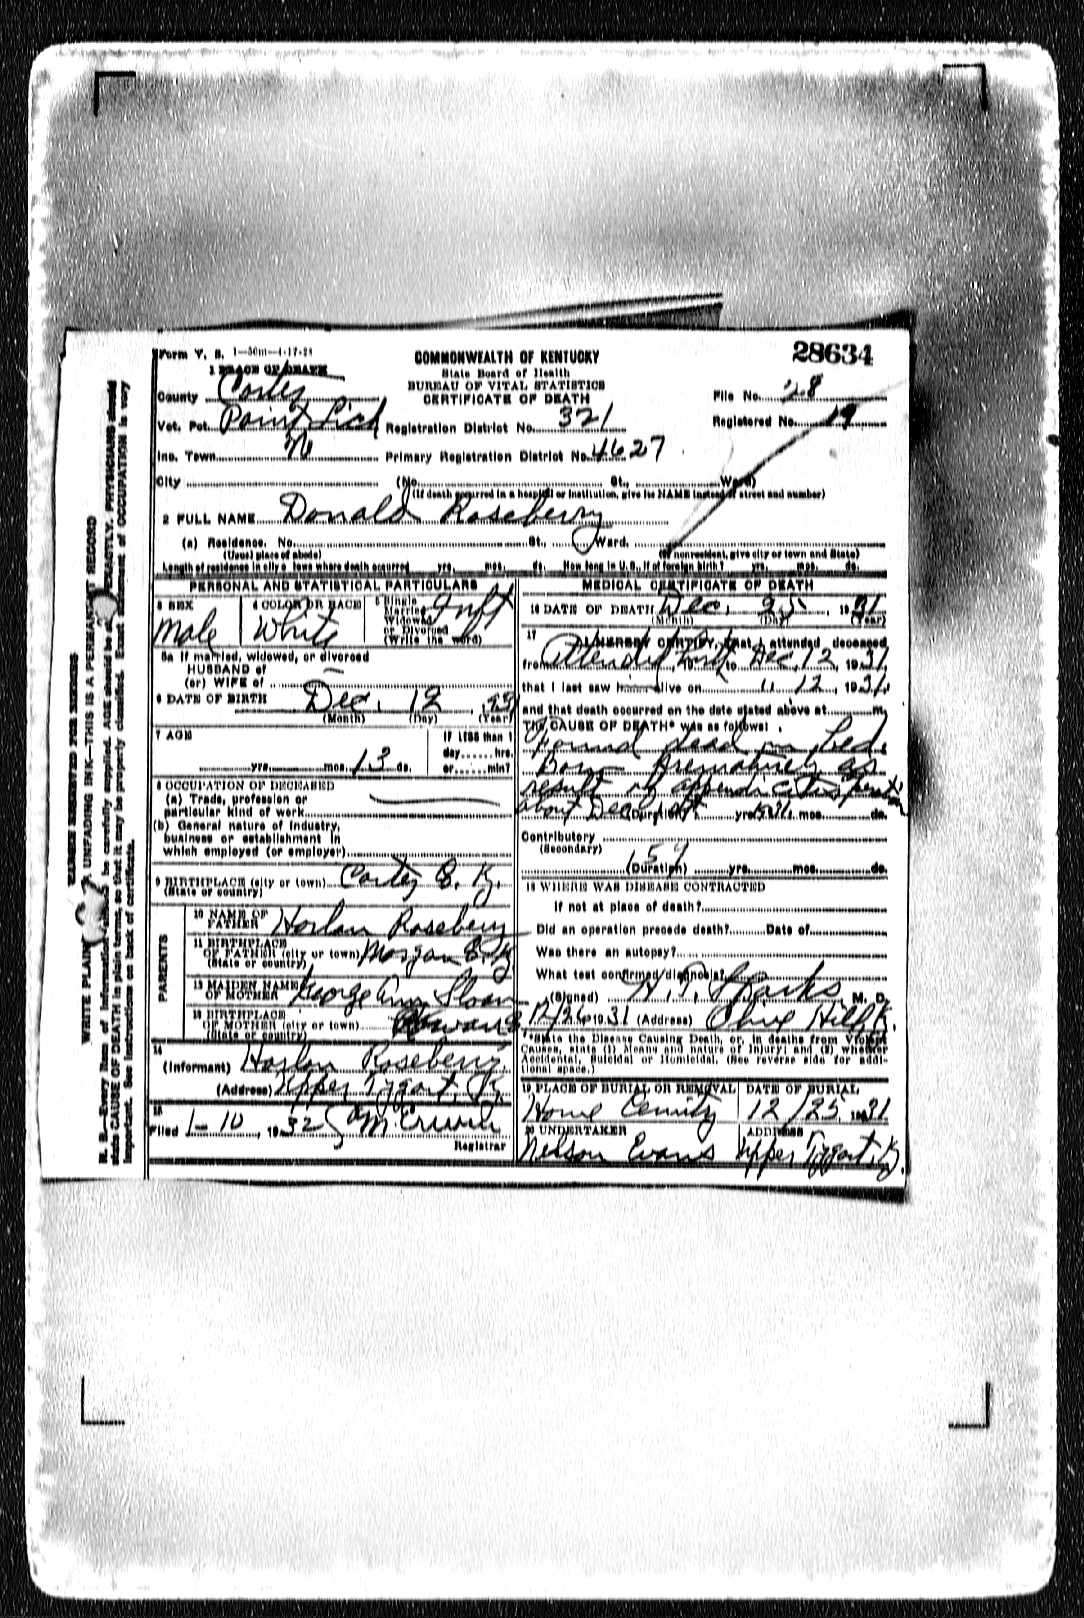 Form V. S. 1-50m-4-17-28
COMMONWEALTH OF KENTUCKY
State Board of Health
BUREAU OF VITAL STATISTICS
CERTIFICATE OF DEATH
28634
1 PLACE OF DEATH
County Carter
File No. 28
Vot. Pct. Registration District No. 321
Registered No. 19
Inc. Town Primary Registration District No. 4627
City (No. St., Ward)
(If death occurred in a hospital or institution, give its NAME instead of street and number)
2 FULL NAME Donald Roseberry
(a) Residence. No. St., Ward.
(Usual place of abode) (If nonresident, give city or town and State)
Length of residence in city or town where death occurred yrs. mos. ds. How long in U. S., if of foreign birth? yrs. mos. ds.
PERSONAL AND STATISTICAL PARTICULARS
3 SEX
Male
4 COLOR OR RACE
White
5 Single
Married
Widowed
or Divorced
(Write the word)
Inft
5a If married, widowed, or divorced
HUSBAND of
(or) WIFE of
6 DATE OF BIRTH Dec. 12
(Month) (Day) (Year)
7 AGE
yrs. mos. 13 ds.
If LESS than 1
day hrs.
or min?
8 OCCUPATION OF DECEASED
(a) Trade, profession or
particular kind of work
(b) General nature of industry,
business or establishment in
which employed (or employer)
9 BIRTHPLACE (city or town) Carter
(State or country)
PARENTS
10 NAME OF
FATHER Harlan Roseberry
11 BIRTHPLACE
OF FATHER (city or town) Morgan
(State or country)
12 MAIDEN NAME
OF MOTHER George Ann Sloan
13 BIRTHPLACE
OF MOTHER (city or town) Rowan
(State or country)
14
(Informant) Harlan Roseberry
(Address) Upper Tygart, K.
15
Filed 1-10, 1932
Registrar
MEDICAL CERTIFICATE OF DEATH
16 DATE OF DEATH Dec. 25, 1931
(Month) (Day) (Year)
17
I HEREBY CERTIFY, that I attended deceased
from to Dec. 12, 1931,
that I last saw h alive on 12, 1931,
and that death occurred on the date stated above at m.
The CAUSE OF DEATH* was as follows:
Found dead in bed.
Born Prematurely as
result of appendicitis
about Dec (Duration) yrs. mos. ds.
Contributory
(Secondary)
159
(Duration) yrs. mos. ds.
18 WHERE WAS DISEASE CONTRACTED
If not at place of death?
Did an operation precede death? Date of
Was there an autopsy?
What test confirmed diagnosis?
(Signed) H. T. Sparks M. D.
12/26 1931 (Address) Olive Hill, K.
*State the Disease Causing Death, or, in deaths from Violent
Causes, state (1) Means and nature of Injury; and (2) whether
Accidental, Suicidal or Homicidal. (See reverse side for addi-
tional space.)
19 PLACE OF BURIAL OR REMOVAL
DATE OF BURIAL
Home 12/25, 1931
20 UNDERTAKER
ADDRESS
Nelson Evans Upper Tygart Ky.
MARGIN RESERVED FOR BINDING
WRITE PLAINLY UNFADING INK—THIS IS A PERMANENT RECORD
N. B.—Every item of information be carefully supplied. AGE should be EXACTLY. PHYSICIANS should
state CAUSE OF DEATH in plain terms, so that it may be properly classified. Exact statement of OCCUPATION is very
important. See instructions on back of certificate.